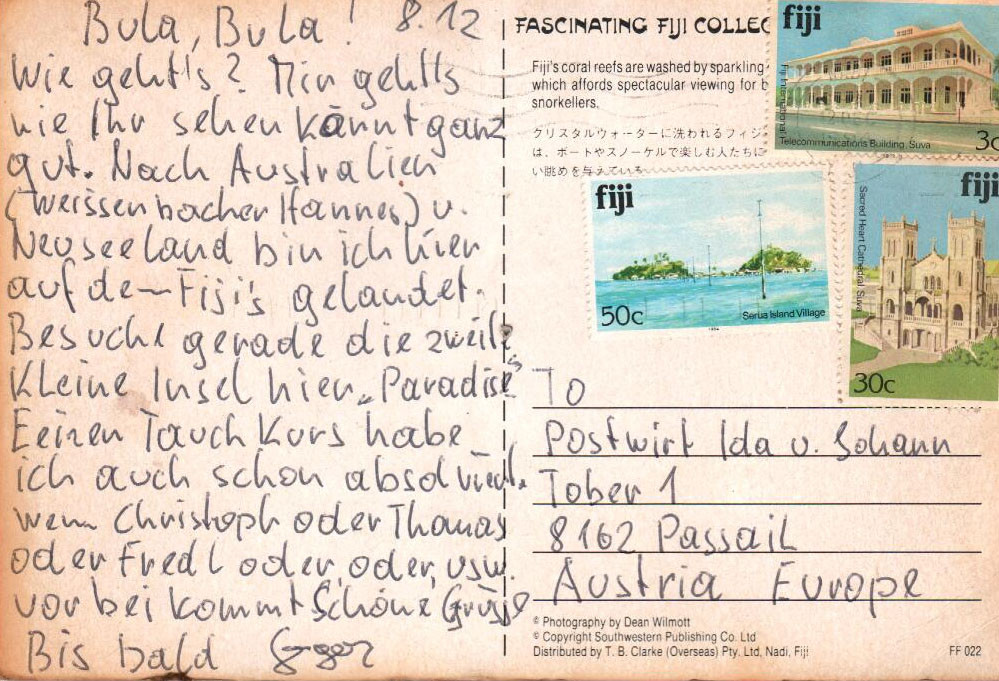 Bula, Bula! 8.12
Wie geht's? Mir geht's
wie Ihr sehen könnt ganz
gut. Nach Australien
(Weissenbacher Hannes) u.
Neuseeland bin ich hier
auf de Fiji's gelandet.
Besuche gerade die zweite
kleine Insel hier „Paradise"
Eeinen Tauch Kurs habe
ich auch schon absolviert.
wenn Christoph oder Thomas
oder Fredl oder, oder, usw.
vorbei kommt Schöne Grüsse
Bis bald
FASCINATING FIJI COLLEC
Fiji's coral reefs are washed by sparkling
which affords spectacular viewing for b
snorkellers.
クリスタルウォーターに洗われるフィジ
は、ボートやスノーケルで楽しむ人たちに
い眺めを与えている
fiji
Fiji International
Telecommunications Building, Suva
3c
fiji
50c
Serua Island Village
fiji
Sacred Heart Cathedral Suva
30c
To
Postwirt Ida u. Johann
Tober 1
8162 Passail
Austria Europe
© Photography by Dean Wilmott
© Copyright Southwestern Publishing Co. Ltd
Distributed by T. B. Clarke (Overseas) Pty. Ltd, Nadi, Fiji
FF 022